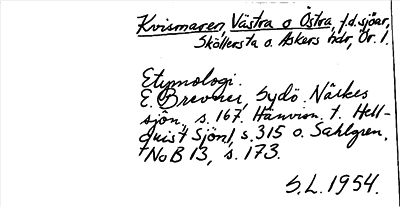 Kvismaren, Västra o Östra, f.d. sjöar,
Sköllersta o. Askers hdr, Ör. l.
Etymologi.
E. Brevner, Sydö. Närkes
sjön., s. 167. Hänvisn. t. Hell-
quist Sjön 1, s. 315 o. Sahlgren,
NoB 13, s. 173.
S.L. 1954.